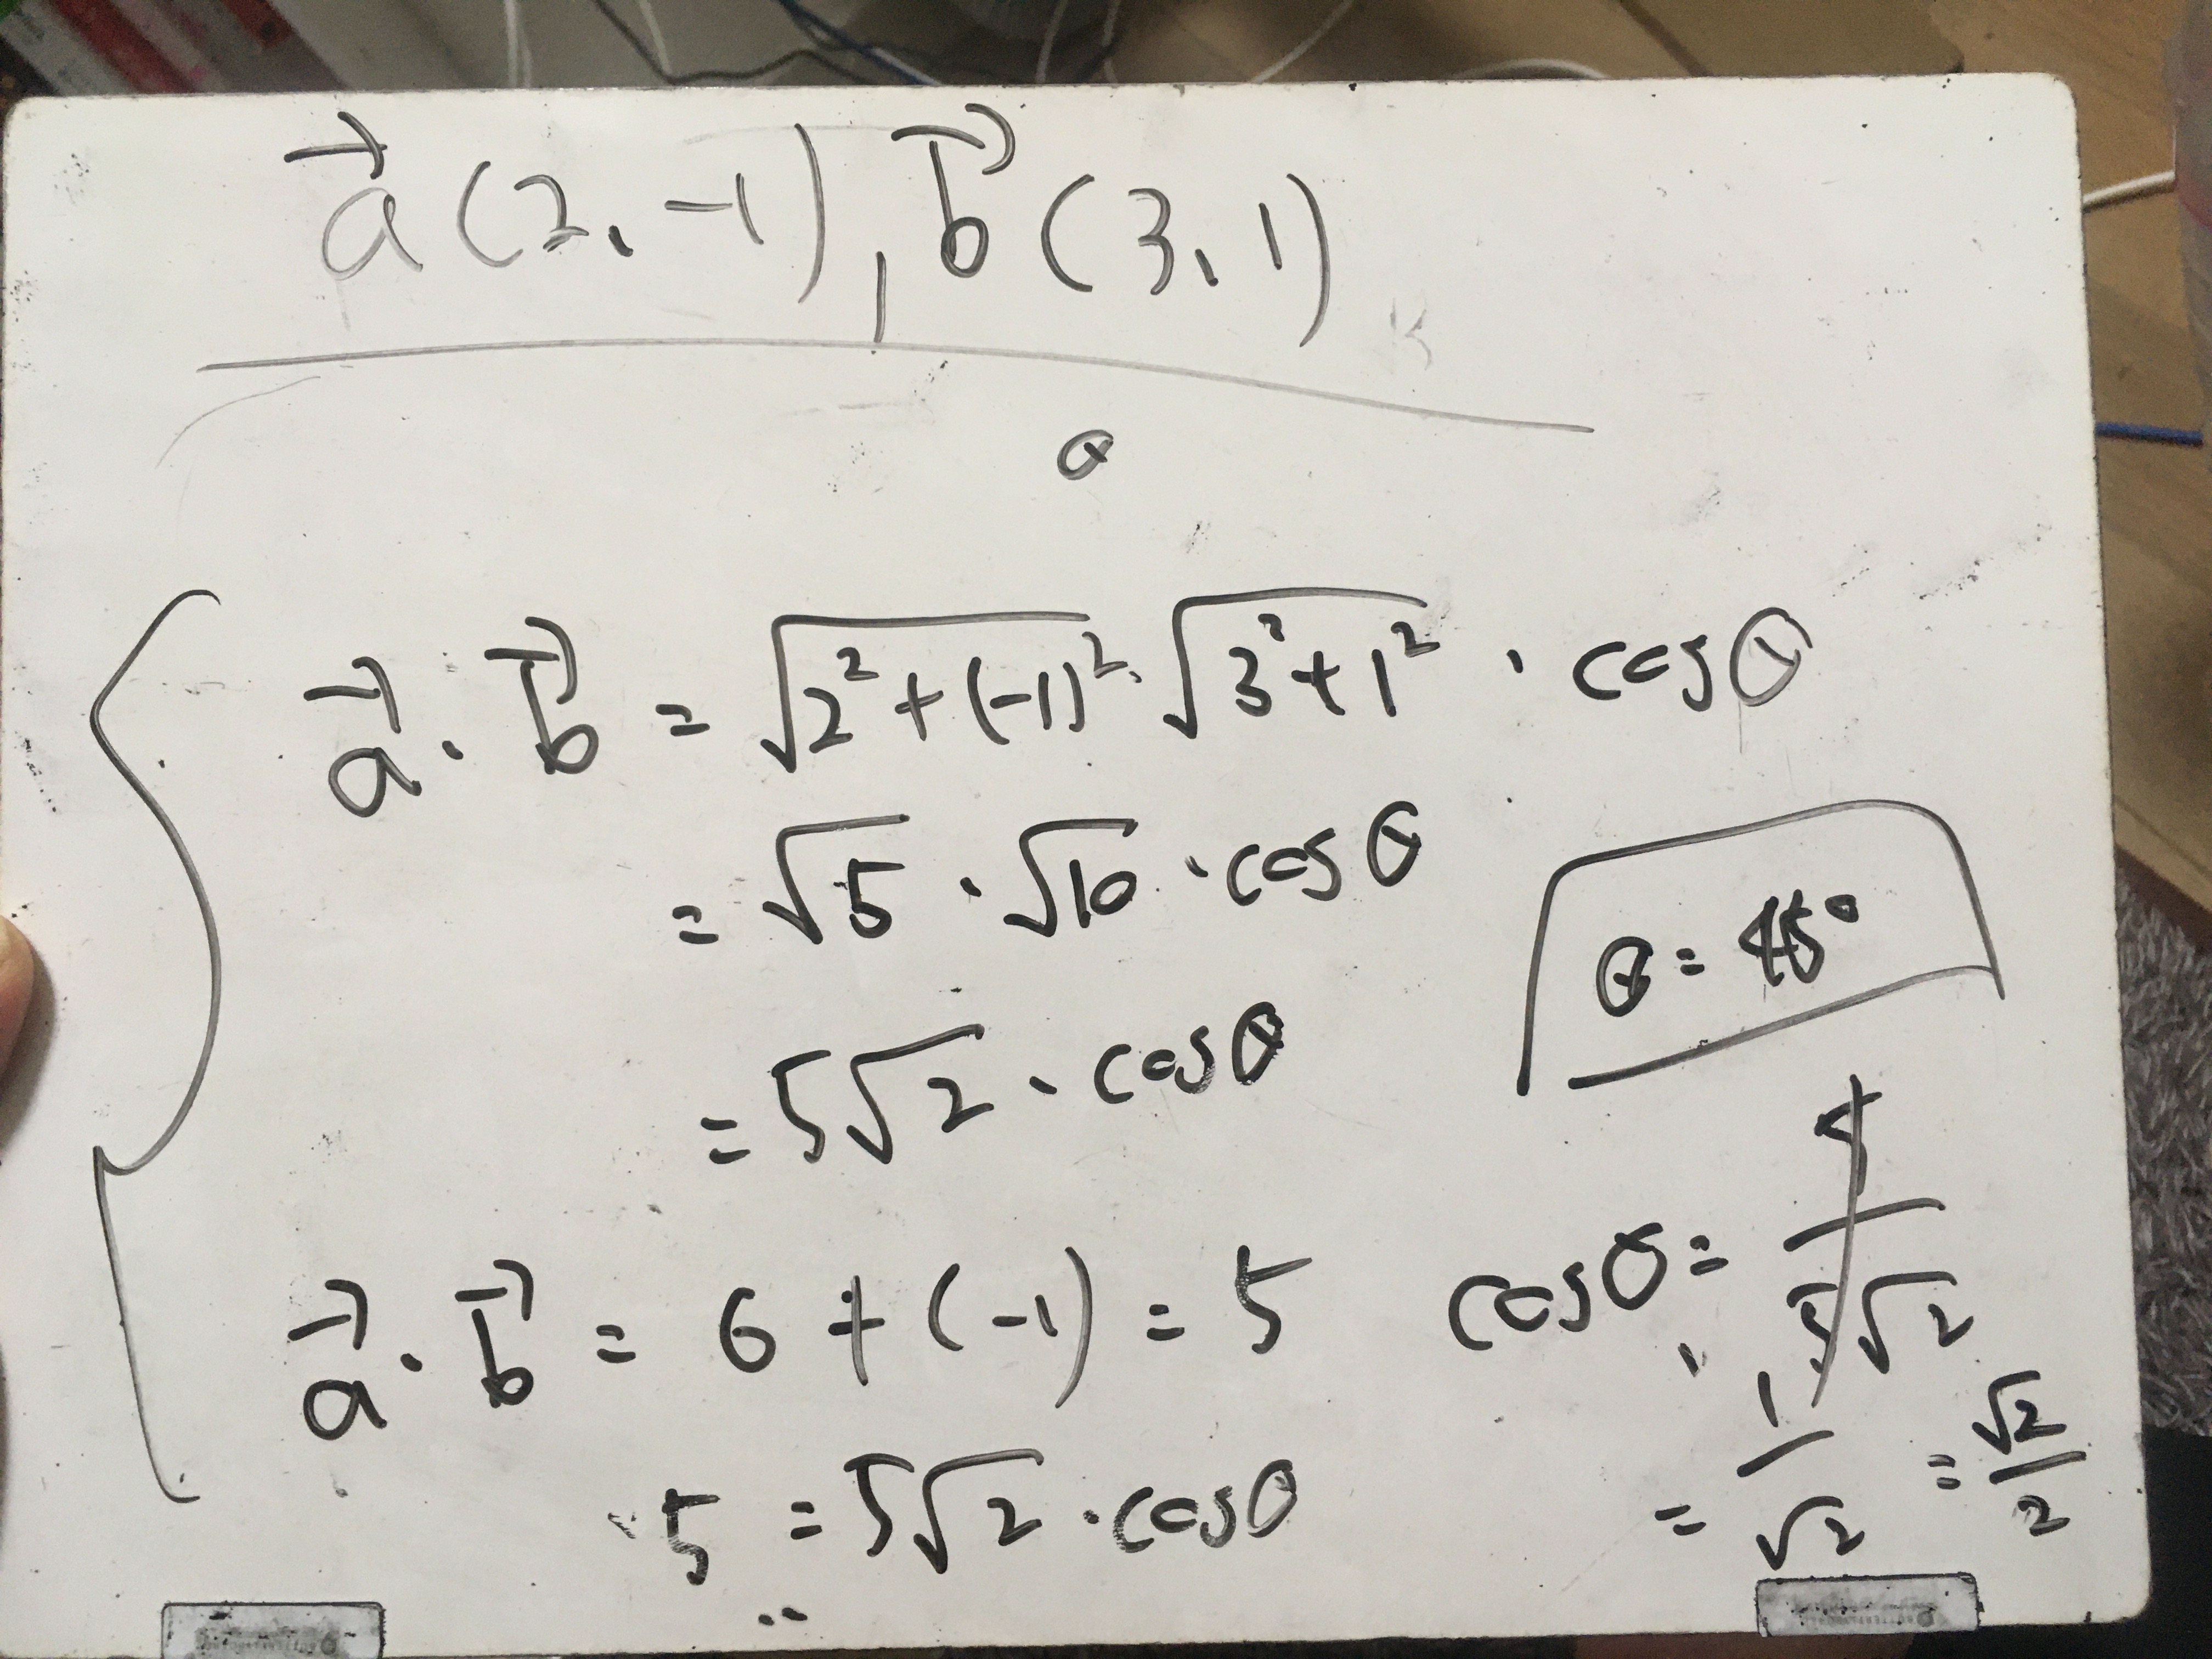 a⃗ (2, -1) b⃗ (3, 1)
θ
a⃗ · b⃗ = √2²+(-1)² · √3²+1² · cosθ
= √5 · √10 · cosθ
= 5√2 · cosθ
a⃗ · b⃗ = 6 + (-1) = 5
5 = 5√2 · cosθ
cosθ = 5/5√2
= 1/√2 = √2/2
θ = 45°